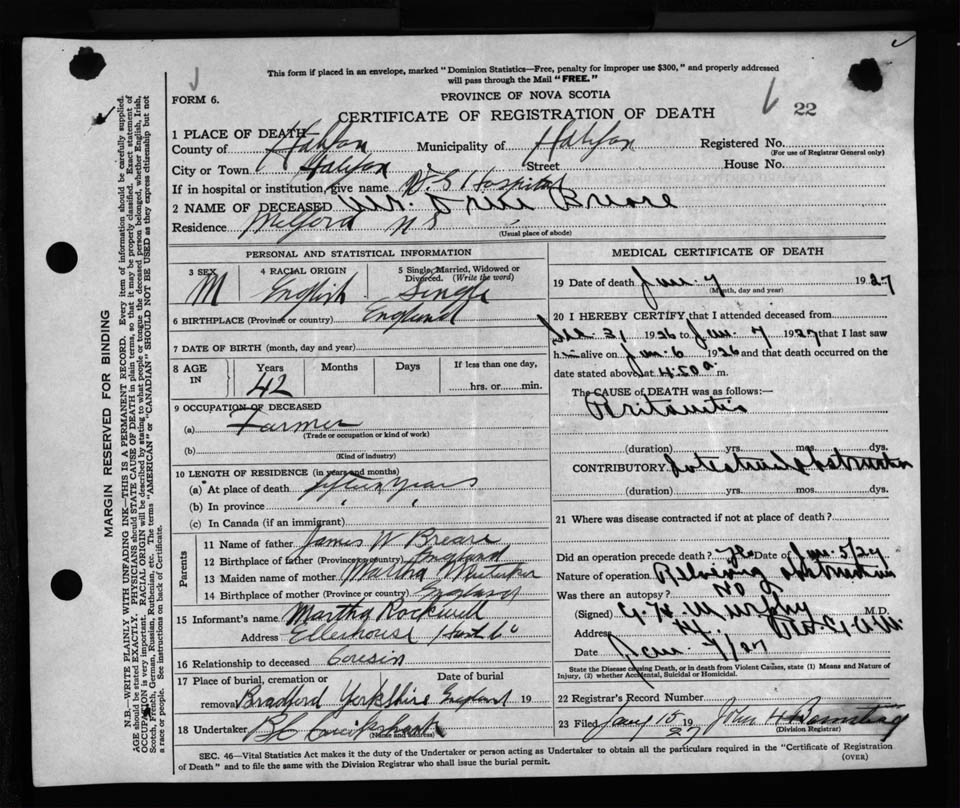 This form if placed in an envelope, marked "Dominion Statistics—Free, penalty for improper use $300," and properly addressed
will pass through the Mail "FREE."
FORM 6.
PROVINCE OF NOVA SCOTIA
22
CERTIFICATE OF REGISTRATION OF DEATH
1 PLACE OF DEATH
County of Halifax Municipality of Halifax Registered No.
(For use of Registrar General only)
City or Town Halifax Street House No.
If in hospital or institution, give name V.G Hospital
2 NAME OF DECEASED Breare
Residence Milford N S
(Usual place of abode)
PERSONAL AND STATISTICAL INFORMATION
3 SEX M
4 RACIAL ORIGIN English
5 Single, Married, Widowed or Divorced. (Write the word) Single
6 BIRTHPLACE (Province or country) England
7 DATE OF BIRTH (month, day and year)
8 AGE IN Years 42 Months Days If less than one day, hrs. or min.
9 OCCUPATION OF DECEASED
(a) Farmer
(Trade or occupation or kind of work)
(b)
(Kind of industry)
10 LENGTH OF RESIDENCE (in years and months)
(a) At place of death fifteen years
(b) In province " "
(c) In Canada (if an immigrant)
Parents
11 Name of father James W Breare
12 Birthplace of father (Province or country) England
13 Maiden name of mother Martha
14 Birthplace of mother (Province or country) England
15 Informant's name Martha Rockwell
Address Ellerhouse Hants Co
16 Relationship to deceased Cousin
17 Place of burial, cremation or removal Bradford Yorkshire England Date of burial 19
18 Undertaker
(Name and address)
MEDICAL CERTIFICATE OF DEATH
19 Date of death Jan. 7 1927
(Month, day and year)
20 I HEREBY CERTIFY that I attended deceased from
Dec. 31 1926 to Jan. 7 1927 that I last saw
h alive on Jan. 6 1926 and that death occurred on the
date stated above at 4.50 a m.
The CAUSE OF DEATH was as follows:—
Peritonitis
(duration) yrs. mos. dys.
CONTRIBUTORY Intestinal Obstruction
(duration) yrs. mos. dys.
21 Where was disease contracted if not at place of death?
Did an operation precede death? Yes Date of Jan. 5/27
Nature of operation Relieving obstruction
Was there an autopsy? No
(Signed) G. H. Murphy M.D.
Address
Date Jan. 7/27
State the Disease causing Death, or in death from Violent Causes, state (1) Means and Nature of
Injury, (2) whether Accidental, Suicidal or Homicidal.
22 Registrar's Record Number
23 Filed Jany 15 1927 John H
(Division Registrar)
SEC. 46—Vital Statistics Act makes it the duty of the Undertaker or person acting as Undertaker to obtain all the particulars required in the "Certificate of Registration
of Death" and to file the same with the Division Registrar who shall issue the burial permit.
(OVER)
MARGIN RESERVED FOR BINDING
N.B.—WRITE PLAINLY WITH UNFADING INK—THIS IS A PERMANENT RECORD. Every item of information should be carefully supplied.
AGE should be stated EXACTLY. PHYSICIANS should STATE CAUSE OF DEATH in plain terms, so that it may be properly classified. Exact statement of
OCCUPATION is very important. RACIAL ORIGIN will be described by stating to what people or tongue the deceased person belonged, whether English, Irish,
Scotch, French, German, Russian, Ruthenian, etc. The terms "AMERICAN" or "CANADIAN" SHOULD NOT BE USED as they express citizenship but not
a race or people. See instructions on back of Certificate.